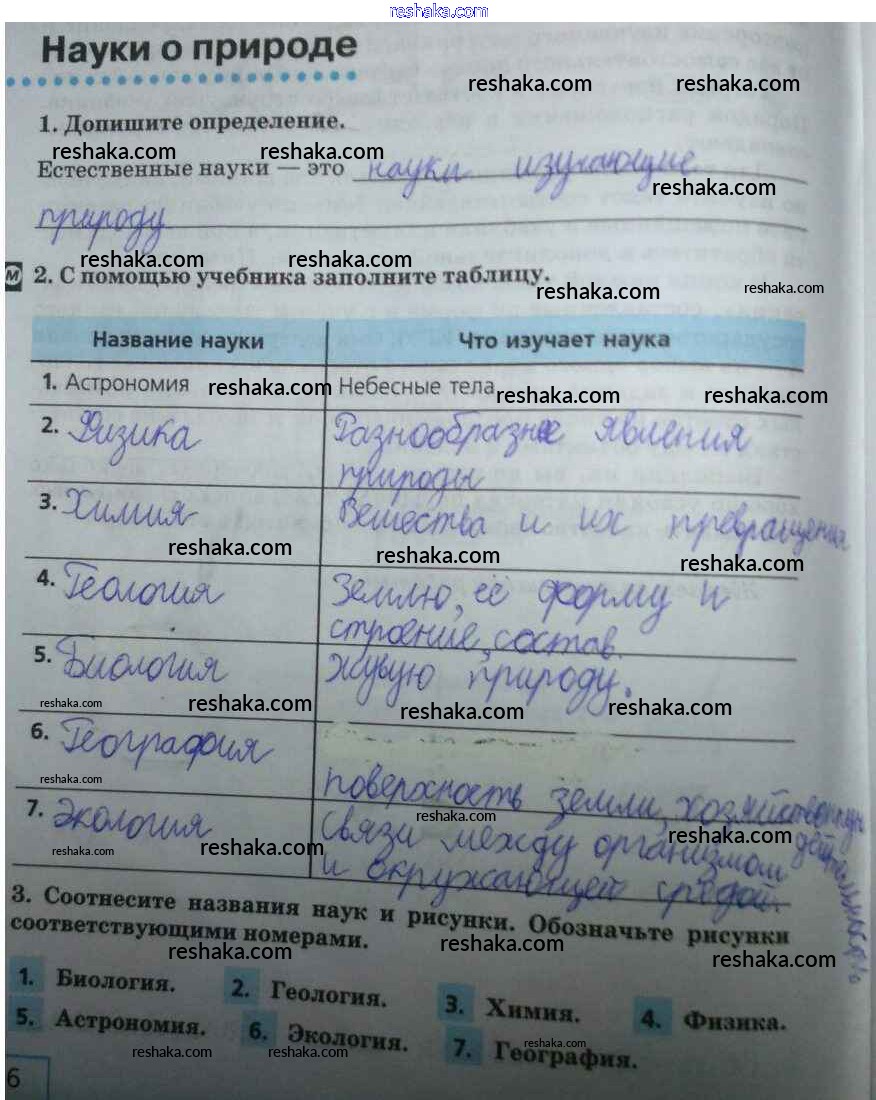 reshaka.com
Науки о природе
reshaka.com reshaka.com
1. Допишите определение.
reshaka.com reshaka.com
Естественные науки — это науки изучающие
reshaka.com
природу
reshaka.com reshaka.com
м 2. С помощью учебника заполните таблицу.
reshaka.com reshaka.com
Название науки Что изучает наука
1. Астрономия reshaka.com Небесные тела reshaka.com reshaka.com
2. Физика Разнообразные явления
природы
3. Химия Вещества и их превращения
reshaka.com reshaka.com reshaka.com
4. Геология Землю, её форму и
строение, состав.
5. Биология живую природу.
reshaka.com reshaka.com reshaka.com reshaka.com
6. География
reshaka.com
поверхность земли, хозяйственную деятельность
7. Экология связи между организмом
reshaka.com
reshaka.com reshaka.com reshaka.com
и окружающей средой.
3. Соотнесите названия наук и рисунки. Обозначьте рисунки
соответствующими номерами.
reshaka.com reshaka.com reshaka.com
1. Биология. 2. Геология. 3. Химия. 4. Физика.
5. Астрономия. 6. Экология. 7. География.
reshaka.com reshaka.com reshaka.com
6